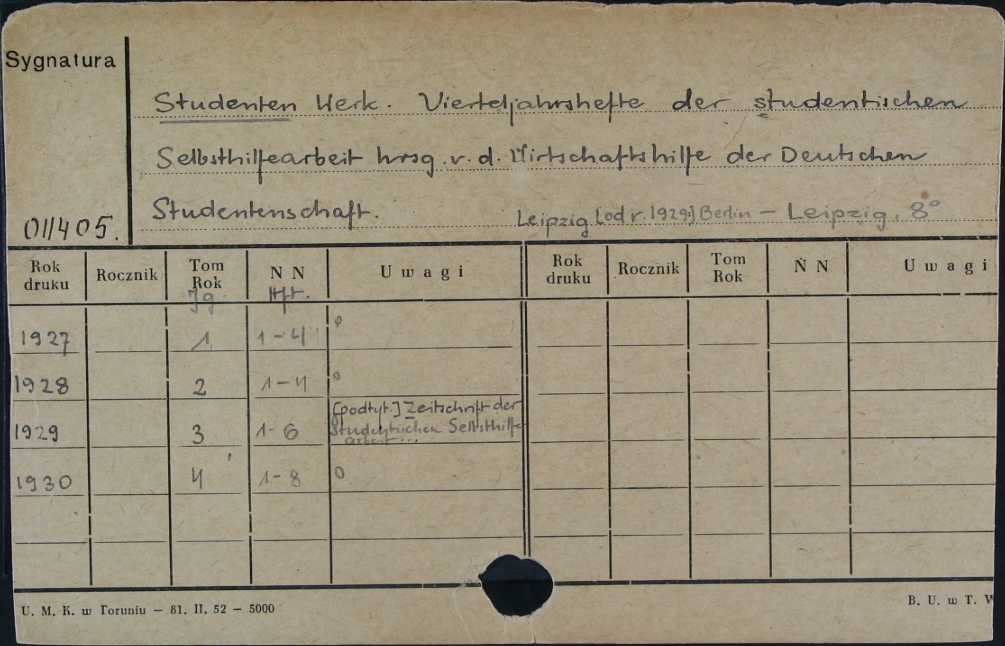 Sygnatura
Studenten Werk. Vierteljahrshefte der studentischen
Selbsthilfearbeit hrsg. v. d. Wirtschaftshilfe der Deutschen
Studentenschaft.
Leipzig [od r. 1929:] Berlin – Leipzig. 8°
01/405.
Rok druku Rocznik Tom Rok N N Uwagi Rok druku Rocznik Tom Rok N N Uwagi
Jg. Hft.
1927 1 1-4 o
1928 2 1-4 o
1929 3 1-6 [podtyt.] Zeitschrift der
Studentischen Selbsthilfe
arbeit...
1930 4 1-8 o
U. M. K. w Toruniu – 81. II. 52 – 5000
B. U. w T. W